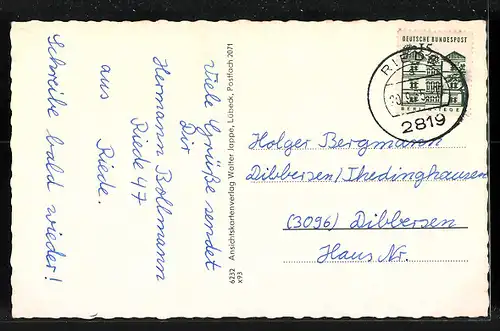 Viele Grüße sendet
Dir
Hermann Bollmann
Riede 47
aus Riede.
Schreibe bald wieder!
6232 Ansichtskartenverlag Walter Jappe, Lübeck, Postfach 2071
x93
DEUTSCHE BUNDESPOST
15
RIEDE
2819
Holger Bergmann
Dibbersen/Thedinghausen
(3096) Dibbersen
Haus Nr.